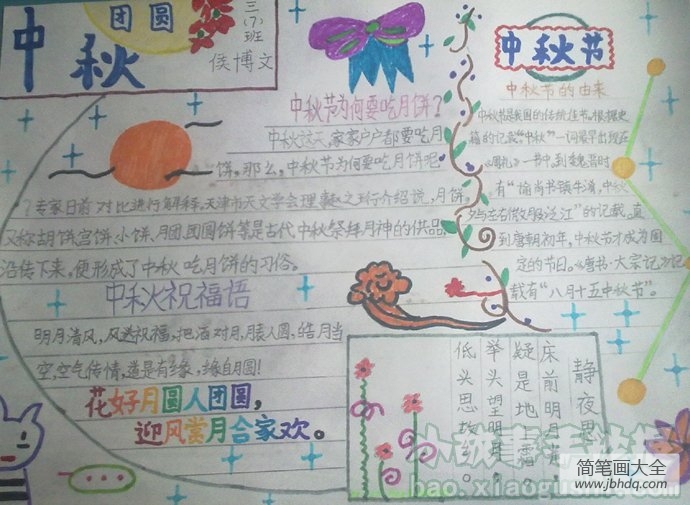 团圆
中秋
三(7)班
侯博文
中秋节为何要吃月饼?
中秋这天,家家户户都要吃月
饼。那么,中秋节为何要吃月饼呢
?专家日前对此进行解释。天津市天文学会理事赵之珩介绍说,月饼,
又称胡饼、宫饼、小饼、月团、团圆饼等是古代中秋祭拜月神的供品,
沿传下来。便形成了中秋吃月饼的习俗。
中秋祝福语
明月清风,风送祝福,把酒对月,月表人圆,皓月当
空,空气传情,道是有缘,缘自月圆!
花好月圆人团圆,
迎风赏月合家欢。
中秋节
中秋节的由来
中秋节是我国的传统佳节。根据史
籍的记载"中秋"一词最早出现在
《周礼》一书中。到魏晋时
有"谕尚书镇牛渚,中秋
夕与左右微服泛江"的记载,直
到唐朝初年,中秋节才成为固
定的节日。《唐书·太宗记》记
载有"八月十五中秋节"。
静夜思
床前明月光
疑是地上霜。
举头望明月
低头思故乡。
小故事手抄报
bao.xiaogushi.com
简笔画大全
www.jbhdq.com